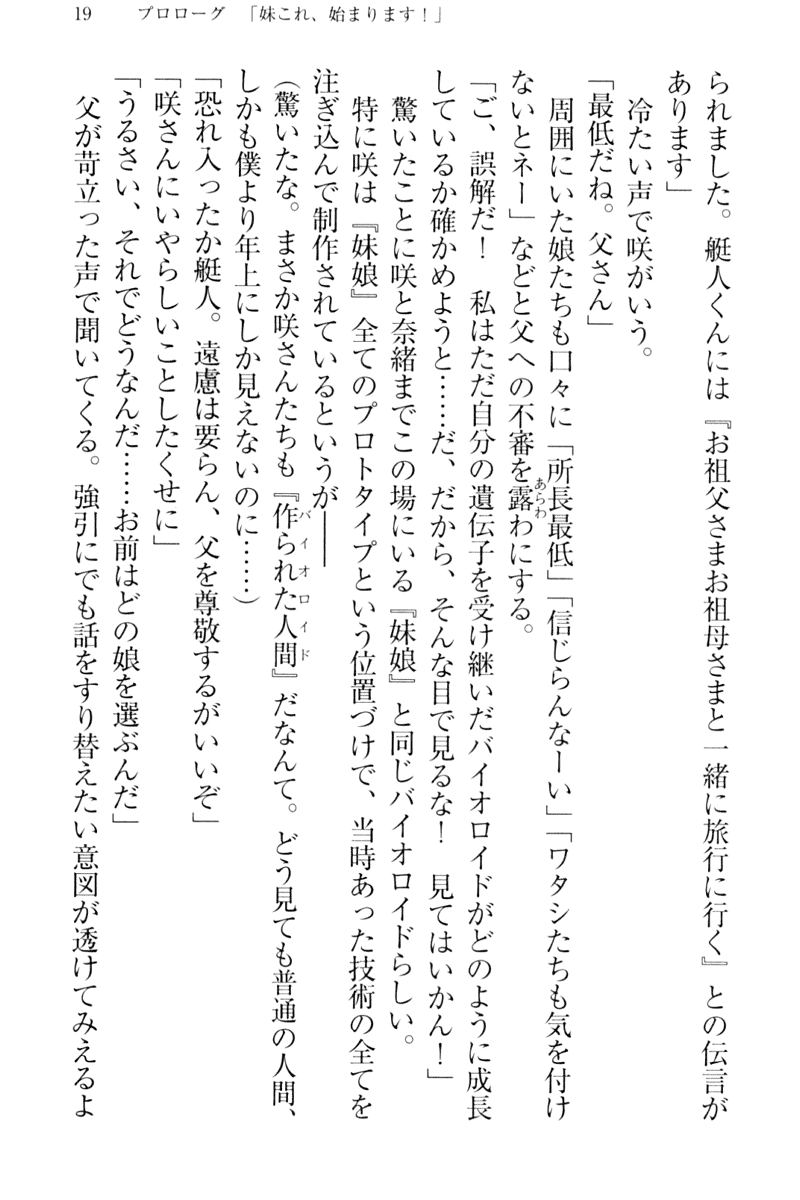 19　　プロローグ　「妹これ、始まります！」
られました。艇人くんには『お祖父さまお祖母さまと一緒に旅行に行く』との伝言が
あります」
　冷たい声で咲がいう。
「最低だね。父さん」
　周囲にいた娘たちも口々に「所長最低」「信じらんなーい」「ワタシたちも気を付け
ないとネー」などと父への不審を露わにする。
「ご、誤解だ！　私はただ自分の遺伝子を受け継いだバイオロイドがどのように成長
しているか確かめようと……だ、だから、そんな目で見るな！　見てはいかん！」
　驚いたことに咲と奈緒までこの場にいる『妹娘』と同じバイオロイドらしい。
　特に咲は『妹娘』全てのプロトタイプという位置づけで、当時あった技術の全てを
注ぎ込んで制作されているというが――
（驚いたな。まさか咲さんたちも『作られた人間』だなんて。どう見ても普通の人間、
しかも僕より年上にしか見えないのに……）
「恐れ入ったか艇人。遠慮は要らん、父を尊敬するがいいぞ」
「咲さんにいやらしいことしたくせに」
「うるさい、それでどうなんだ……お前はどの娘を選ぶんだ」
　父が苛立った声で聞いてくる。強引にでも話をすり替えたい意図が透けてみえるよ
あらわ
バイオロイド